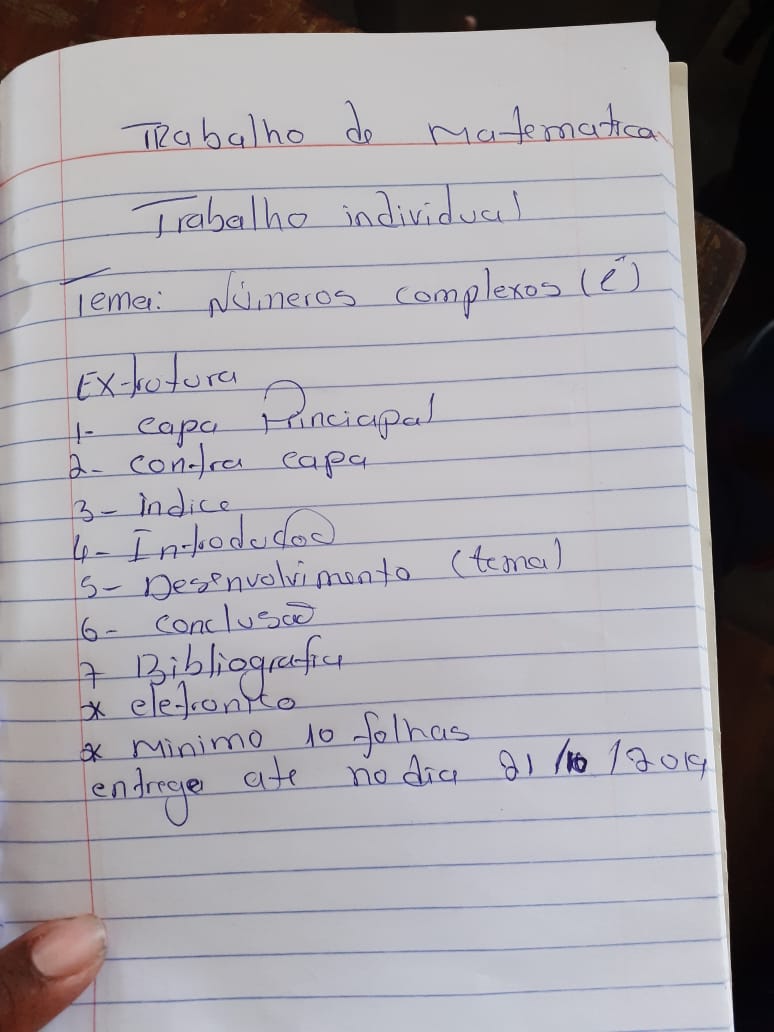 Trabalho de Matematica
Trabalho individual
Tema: Números complexos (č)
Extrutura
1- capa Princiapal
2- contra capa
3- indice
4- Introdudão
5- Desenvolvimento (tema)
6- conclusão
7 Bibliografia
* eletronico
* Minimo 10 folhas
entrege ate no dia 21/10/2019